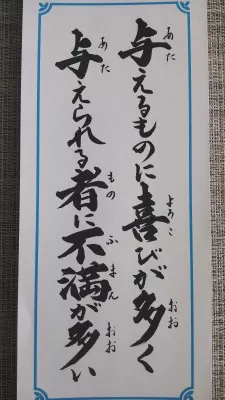 与えるものに喜びが多く
与えられる者に不満が多い
あた
よろこ
おお
あた
もの
ふまん
おお